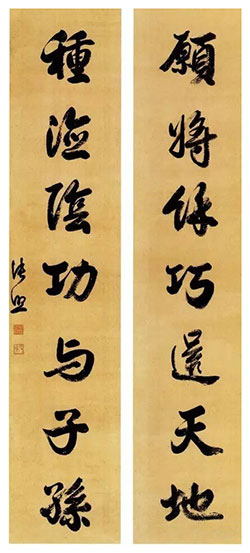 願將巧還天地
種陰功与子孫
張照